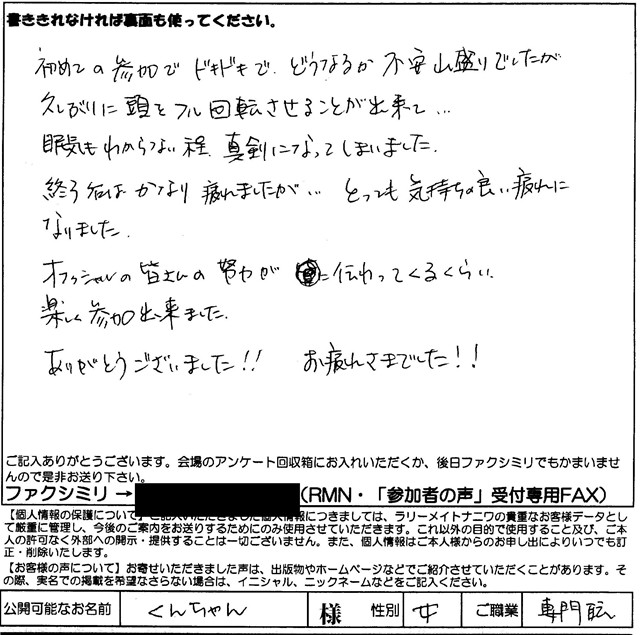 書ききれなければ裏面も使ってください。
初めての参加で ドキドキで、どうなるか 不安山盛りでしたが
久しぶりに 頭をフル回転させることが出来て…
眠気もわからない程、真剣になってしまいました。
終了後は かなり 疲れましたが… とっても 気持ちの良い疲れに
なりました。
オフィシャルの 皆さんの 努力が に伝わってくるくらい
楽しく 参加出来ました。
ありがとうございました!! お疲れさまでした!!
ご記入ありがとうございます。会場のアンケート回収箱にお入れいただくか、後日ファクシミリでもかまいませ
んので是非お送り下さい。
ファクシミリ → (RMN・「参加者の声」受付専用FAX)
【個人情報の保護について】ご記入いただきました個人情報につきましては、ラリーメイトナニワの貴重なお客様データとし
て厳重に管理し、今後のご案内をお送りするためにのみ使用させていただきます。これ以外の目的で使用すること及び、ご本
人の許可なく外部への開示・提供することは一切ございません。また、個人情報はご本人様からのお申し出によりいつでも訂
正・削除いたします。
【お客様の声について】お寄せいただきました声は、出版物やホームページなどでご紹介させていただくことがあります。そ
の際、実名での掲載を希望なさらない場合は、イニシャル、ニックネームなどをご記入ください。
公開可能なお名前 くんちゃん 様 性別 女 ご職業 専門職